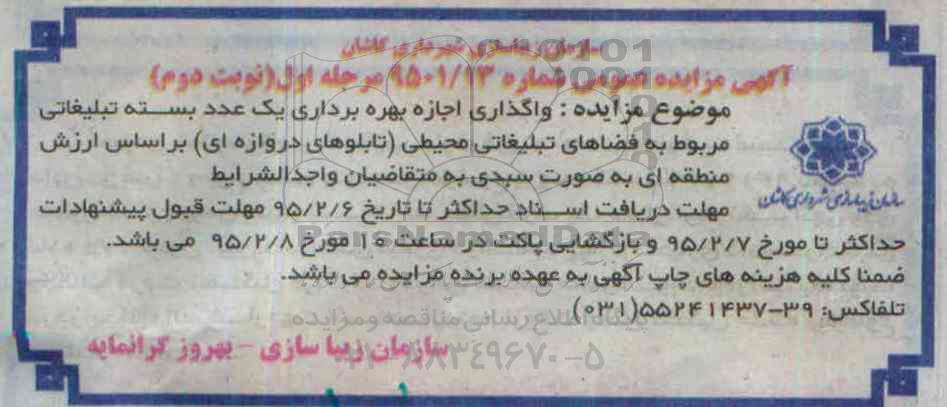 سازمان زیباسازی شهرداری کاشان
آگهی مزایده عمومی شماره ۹۵۰۱/۱۳ مرحله اول(نوبت دوم)
موضوع مزایده : واگذاری اجازه بهره برداری یک عدد بسته تبلیغاتی
مربوط به فضاهای تبلیغاتی محیطی (تابلوهای دروازه ای) براساس ارزش
منطقه ای به صورت سبدی به متقاضیان واجدالشرایط
سازمان زیباسازی شهرداری کاشان
مهلت دریافت اسناد حداکثر تا تاریخ ۹۵/۲/۶ مهلت قبول پیشنهادات
حداکثر تا مورخ ۹۵/۲/۷ و بازگشایی پاکت در ساعت ۱۰ مورخ ۹۵/۲/۸ می باشد.
ParsNamadData
ضمنا کلیه هزینه های چاپ آگهی به عهده برنده مزایده می باشد.
تلفاکس: ۳۹-۵۵۲۴۱۴۳۷(۰۳۱)
پایگاه اطلاع رسانی مناقصه و مزایده
سازمان زیبا سازی - بهروز گرانمایه